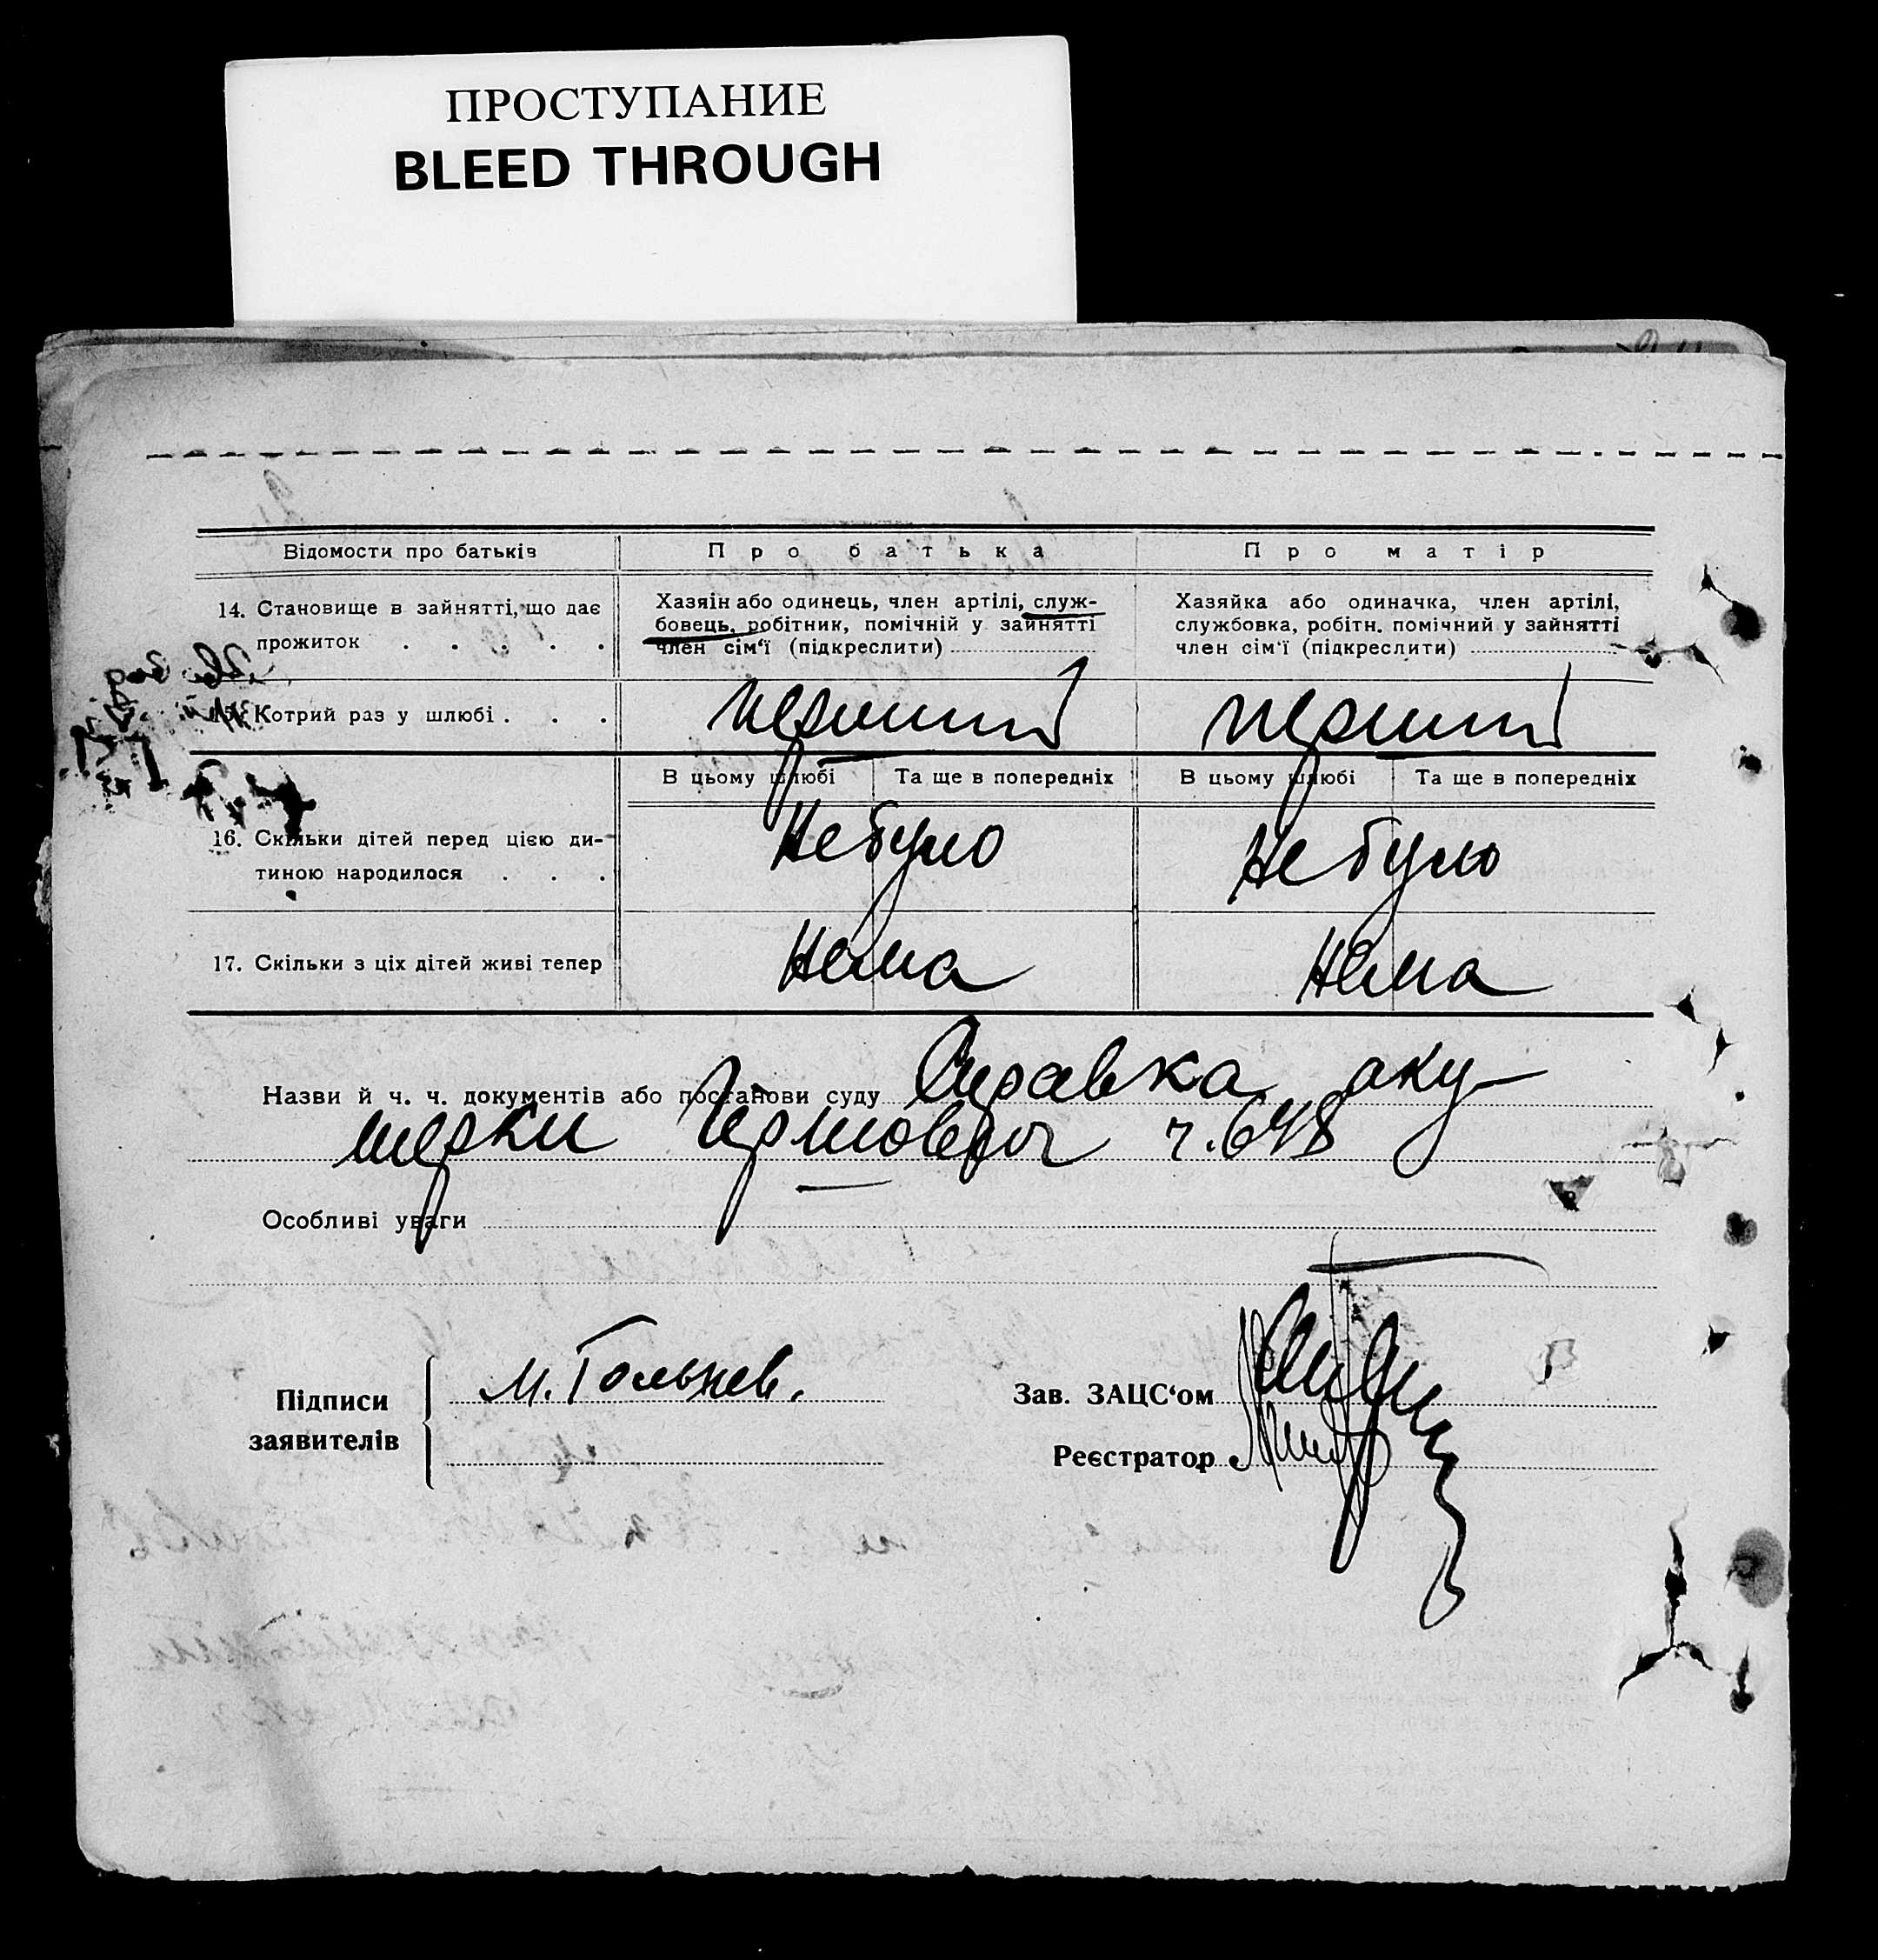 ПРОСТУПАНИЕ
BLEED THROUGH
Відомости про батьків
Про батька
Про матір
14. Становище в зайнятті, що дає
прожиток . . . . .
Хазяін або одинець, член артілі, служ-
бовець, робітник, помічній у зайнятті
член сім'ї (підкреслити)
Хазяйка або одиначка, член артілі,
службовка, робітн. помічний у зайнятті
член сім'ї (підкреслити)
15. Котрий раз у шлюбі . . .
перший
перший
В цьому шлюбі
Та ще в попередніх
В цьому шлюбі
Та ще в попередніх
16. Скільки дітей перед цією ди-
тиною народилося . . .
Не було
Не було
17. Скільки з ціх дітей живі тепер
Нема
Нема
Назви й ч. ч. документів або постанови суду Справка аку-
шерки ч. 648
Особливі уваги
Підписи
заявителів
М. Гольнев.
Зав. ЗАЦС'ом
Реєстратор